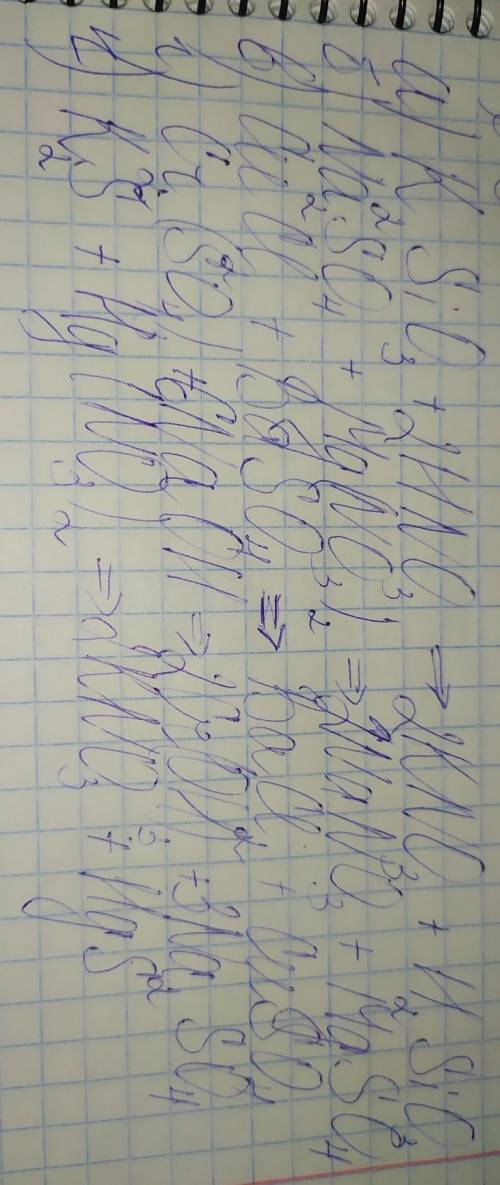 а) K₂SiO₃ + 2HNO₃ → 2KNO₃ + H₂SiO₃
б) Na₂SO₄ + Mg(NO₃)₂ ⇒ 2NaNO₃ + MgSO₄
в) CuCl₂ + BaSO₄ ⇒ BaCl₂ + CuSO₄
г) Cr₂(SO₄)₃ + 6NaOH ⇒ 2Cr(OH)₃ + 3Na₂SO₄
K₂S + Hg(NO₃)₂ ⇒ 2KNO₃ + HgS